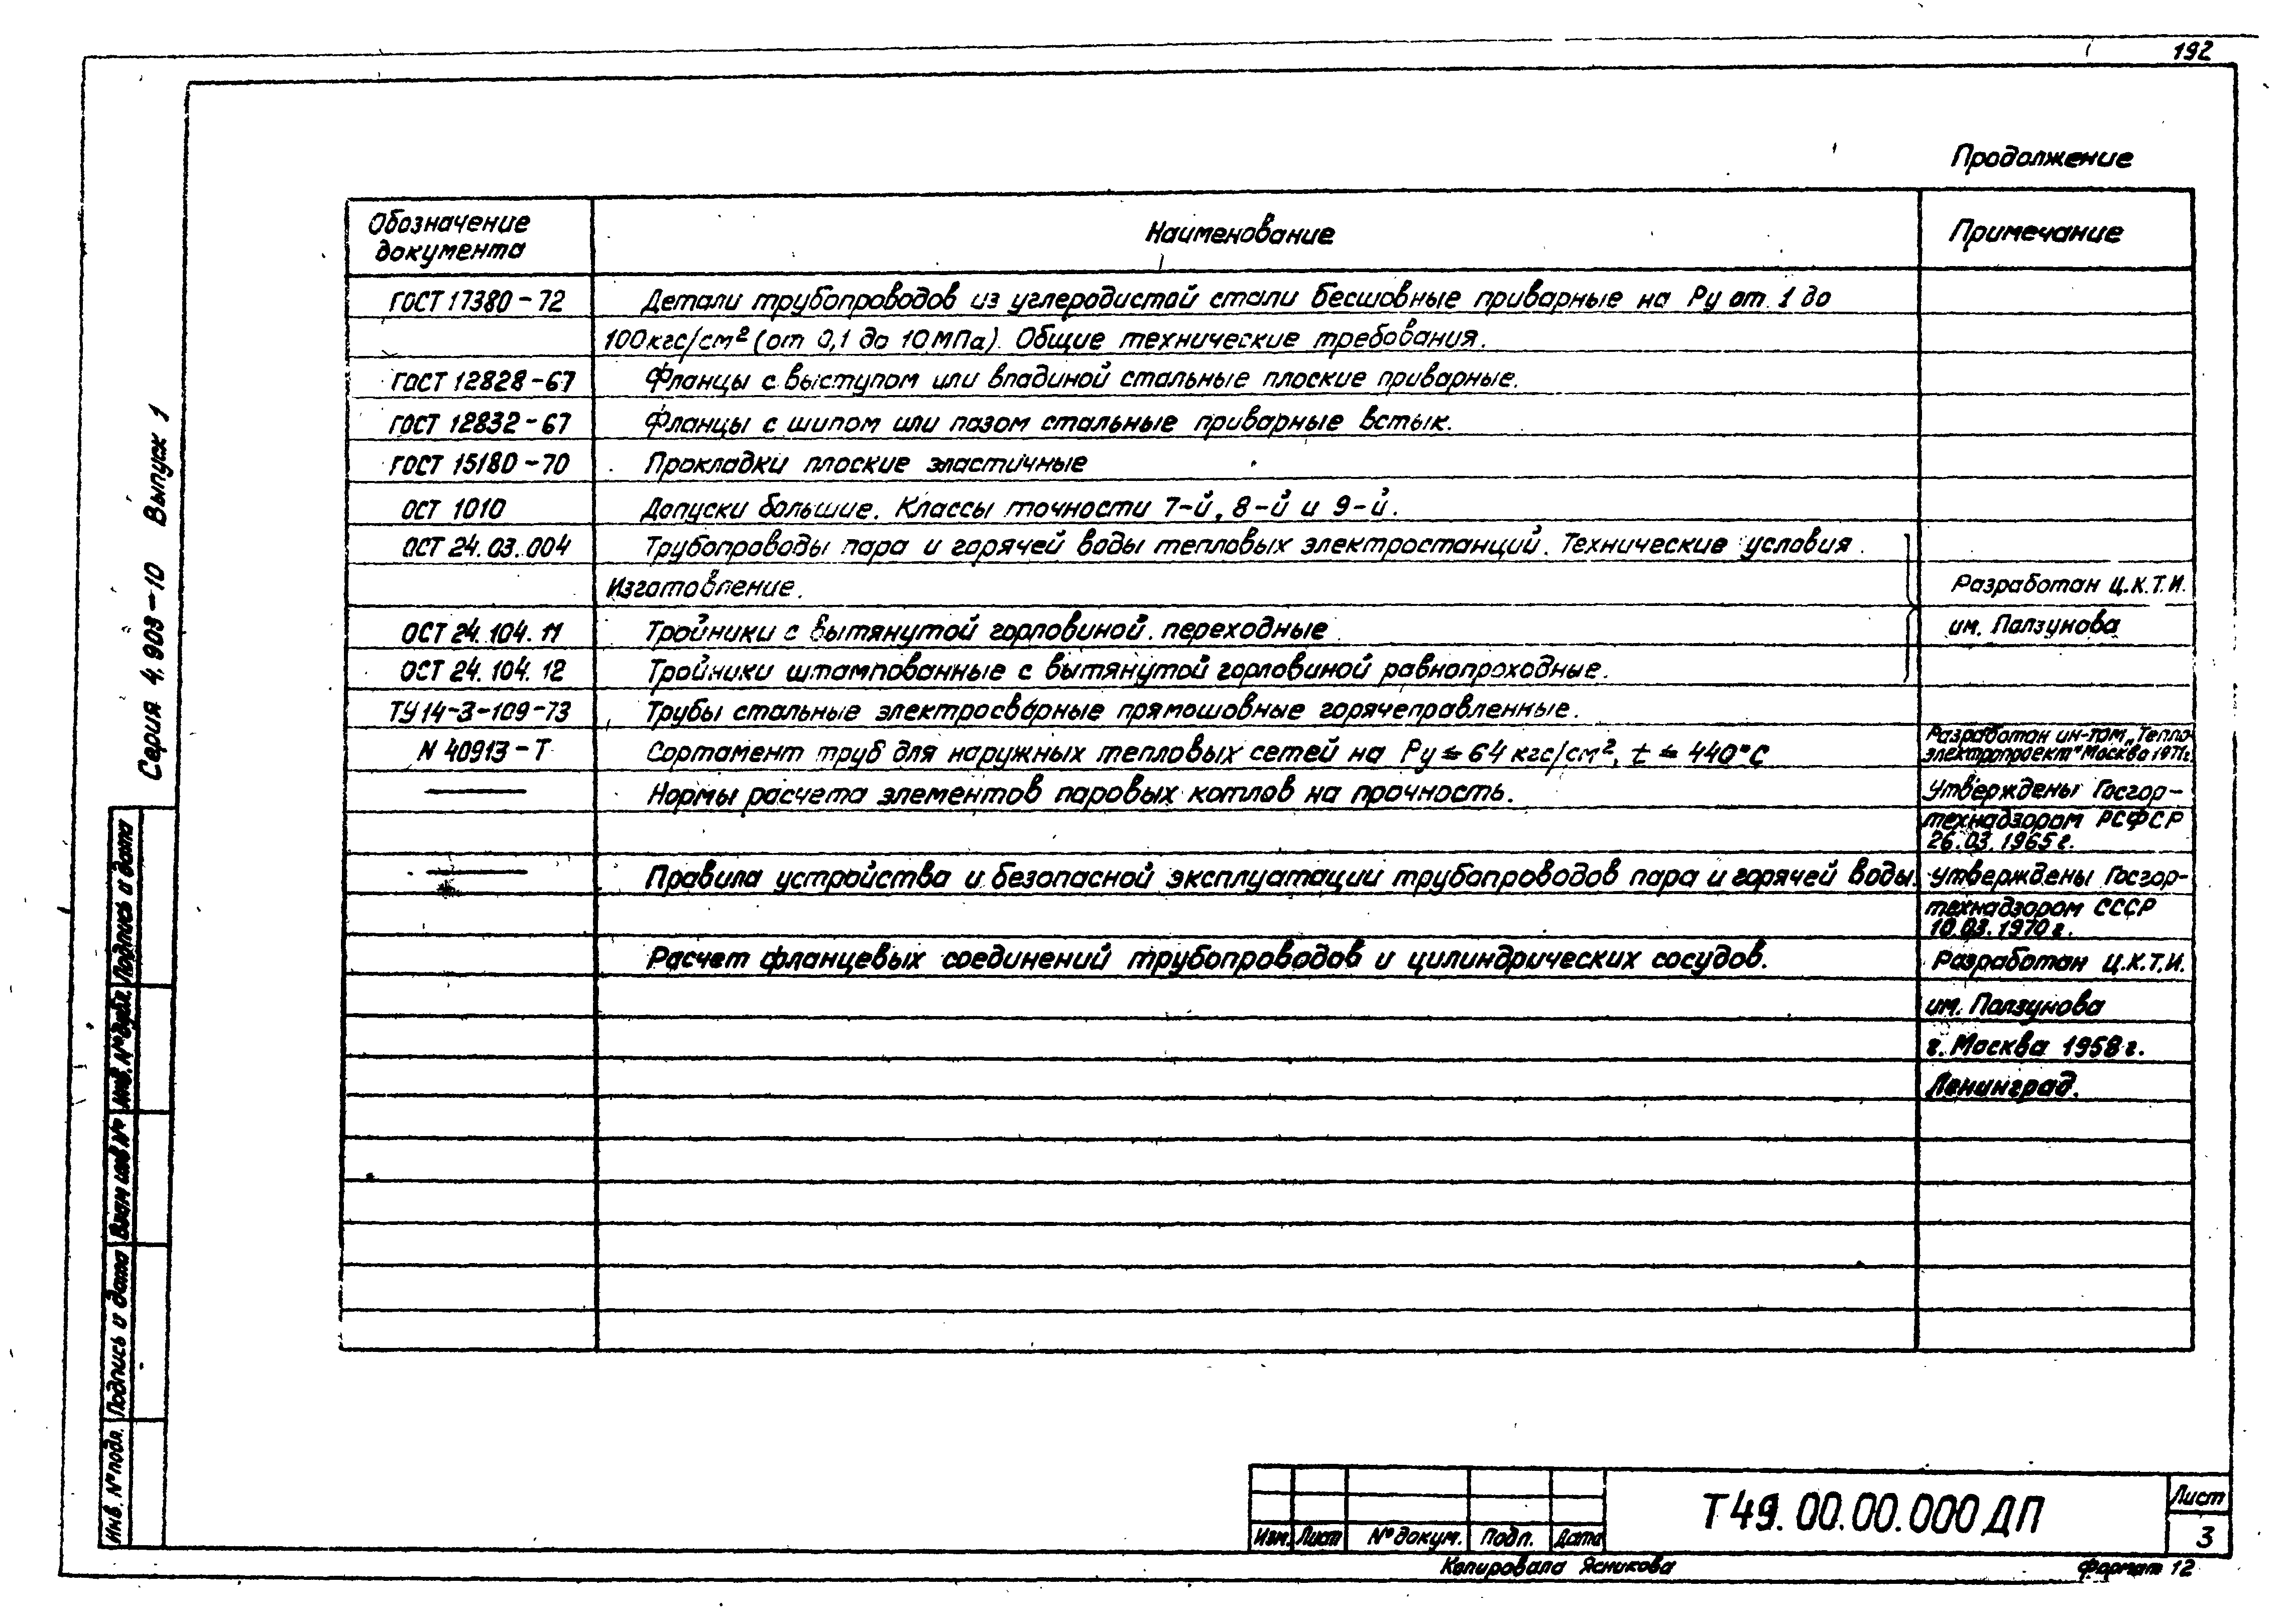 192
Продолжение
Обозначение документа Наименование Примечание
ГОСТ 17380-72 Детали трубопроводов из углеродистой стали бесшовные приварные на Ру от 1 до
100 кгс/см² (от 0,1 до 10 МПа). Общие технические требования.
ГОСТ 12828-67 Фланцы с выступом или впадиной стальные плоские приварные.
ГОСТ 12832-67 Фланцы с шипом или пазом стальные приварные встык.
ГОСТ 15180-70 Прокладки плоские эластичные
ОСТ 1010 Допуски большие. Классы точности 7-й, 8-й и 9-й.
ОСТ 24.03.004 Трубопроводы пара и горячей воды тепловых электростанций. Технические условия.
Изготовление. Разработан Ц.К.Т.И.
ОСТ 24.104.11 Тройники с вытянутой горловиной переходные им. Ползунова
ОСТ 24.104.12 Тройники штампованные с вытянутой горловиной равнопроходные.
ТУ 14-3-109-73 Трубы стальные электросварные прямошовные горячеправленные.
N 40913-Т Сортамент труб для наружных тепловых сетей на Ру ≤ 64 кгс/см², t ≤ 440°С Разработан ин-том „Тепло-
электропроект" Москва 1971г.
— Нормы расчета элементов паровых котлов на прочность. Утверждены Госгор-
технадзором РСФСР
26.03.1965г.
— Правила устройства и безопасной эксплуатации трубопроводов пара и горячей воды. Утверждены Госгор-
технадзором СССР
10.03.1970г.
Расчет фланцевых соединений трубопроводов и цилиндрических сосудов. Разработан Ц.К.Т.И.
им. Ползунова
г. Москва 1958г.
Ленинград.
Серия 4.903-10 Выпуск 1
Инв. № подл. Подпись и дата Взам инв № Инв. № дубл. Подпись и дата
Изм. Лист № докум. Подп. Дата
Т49.00.00.000 ДП
Лист
3
Копировала Ясникова
Формат 12